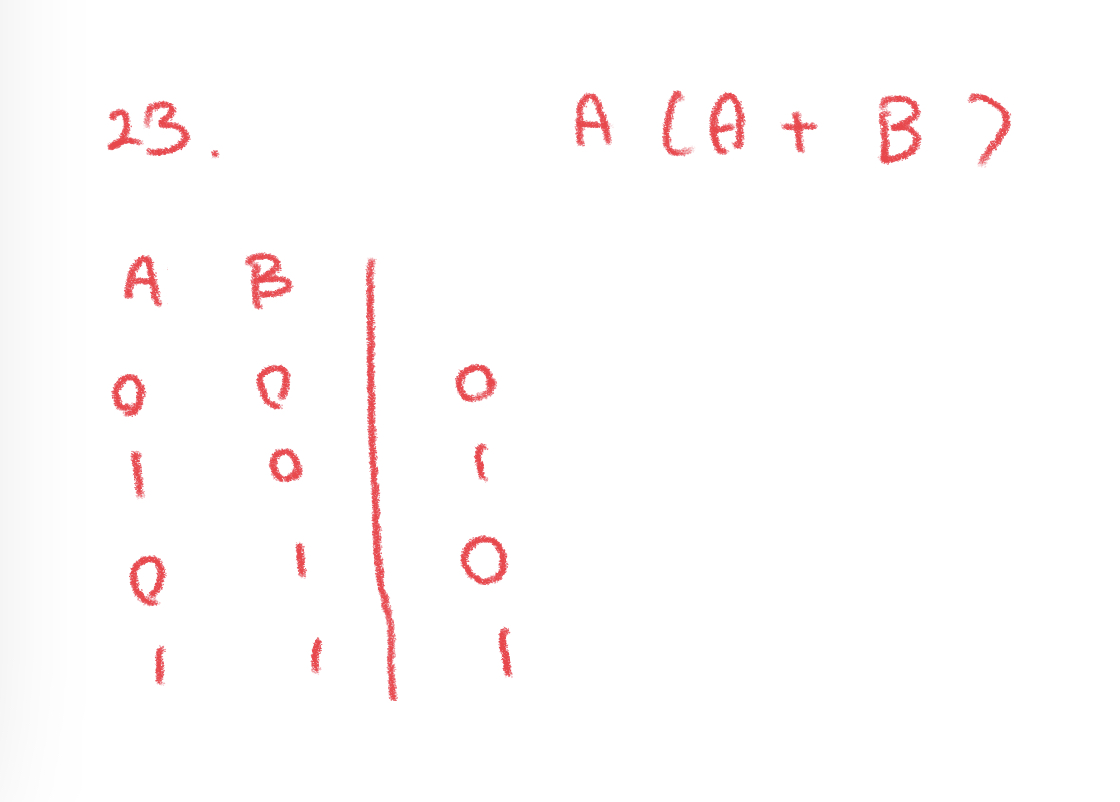 23. A (A + B)
A B
0 0 0
1 0 1
0 1 0
1 1 1